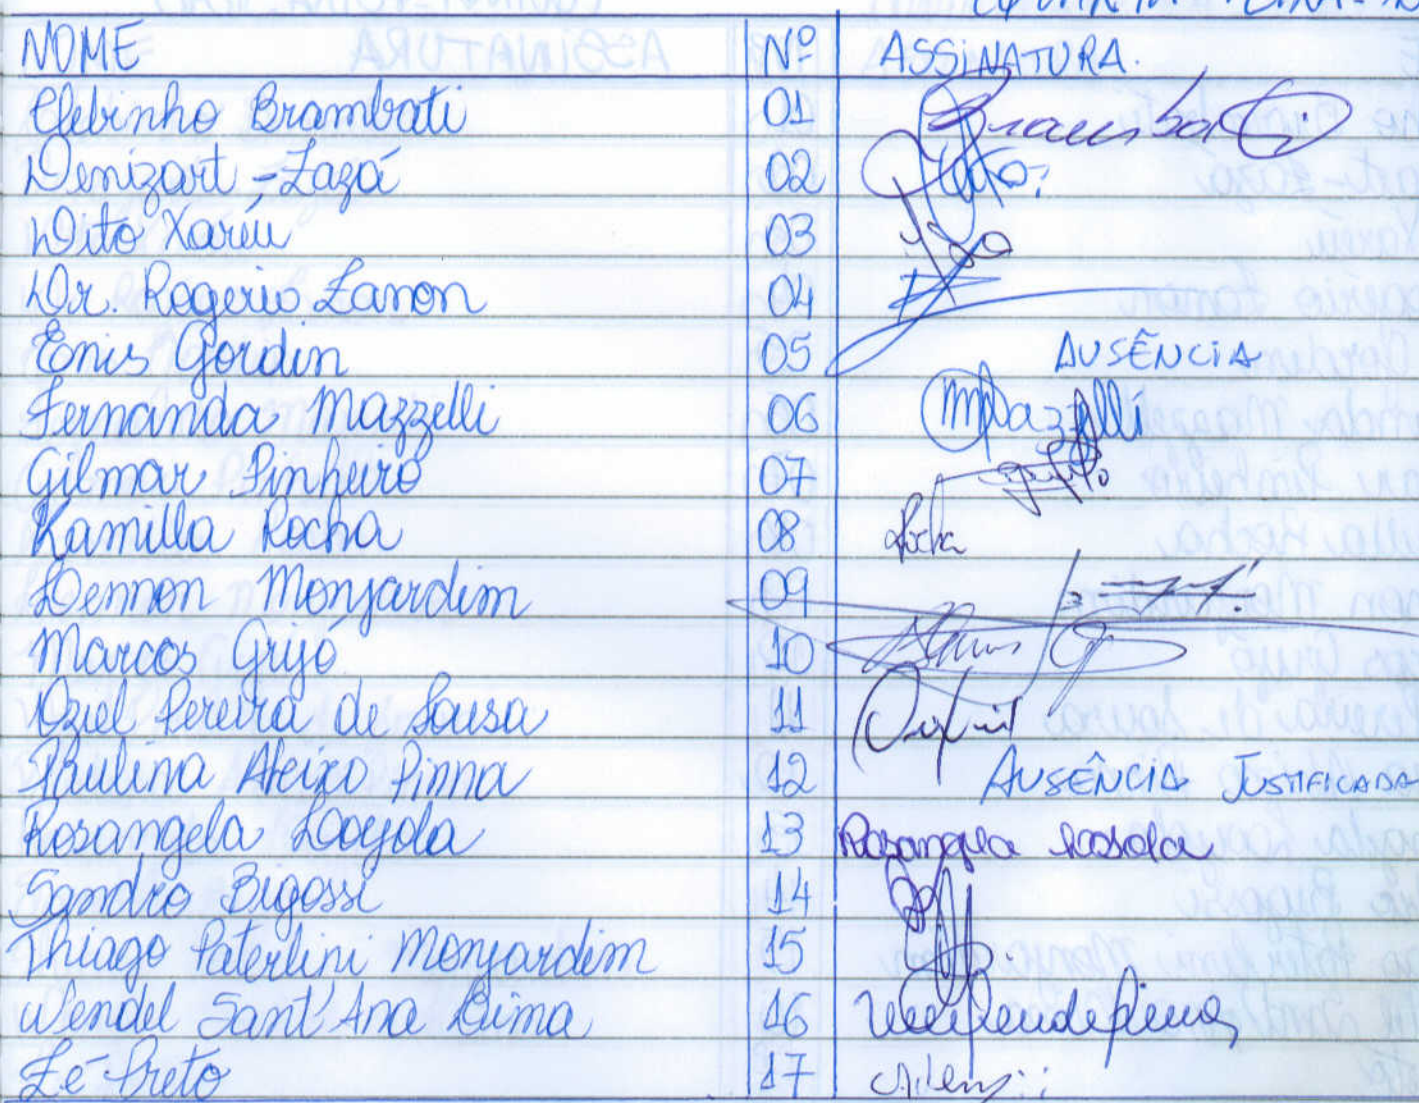 NOME Nº ASSINATURA.
Clebinho Brambati 01 Brambati
Denizart - Zazá 02
Dito Xaréu 03
Dr. Rogerio Zanon 04
Enis Gordin 05 AUSÊNCIA
Fernanda Mazzelli 06 Mazzelli
Gilmar Pinheiro 07
Kamilla Rocha 08 Rocha
Lennon Monjardim 09
Marcos Grijó 10
Oziel Pereira de Sousa 11
Paulina Aleixo Pinna 12 AUSÊNCIA JUSTIFICADA
Rosangela Looyola 13 Rosangela
Sandro Bigossi 14
Thiago Paterlini Monjardim 15
Wendel Sant'Ana Lima 16
Zé Preto 17